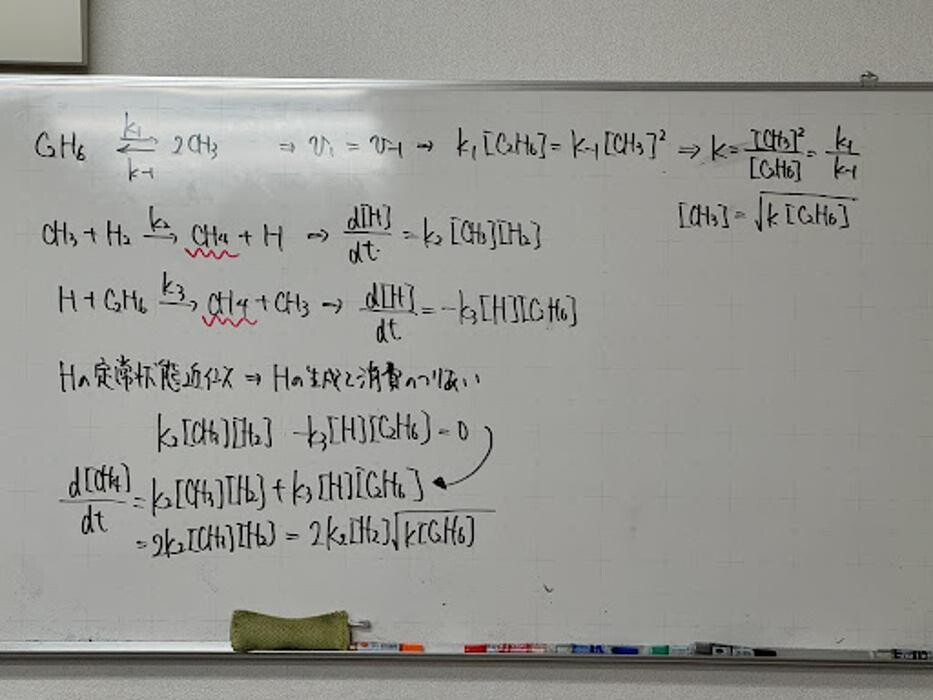 C₂H₆ ⇄ 2CH₃ ⇒ v₁ = v₋₁ → k₁[C₂H₆] = k₋₁[CH₃]² ⇒ k = [CH₃]²/[C₂H₆] = k₁/k₋₁
k₁
k₋₁
[CH₃] = √k[C₂H₆]
CH₃ + H₂ →k₂ CH₄ + H → d[H]/dt = k₂[CH₃][H₂]
H + C₂H₆ →k₃ CH₄ + CH₃ → d[H]/dt = -k₃[H][C₂H₆]
Hの定常状態近似 ⇒ Hの生成と消費のつりあい
k₂[CH₃][H₂] -k₃[H][C₂H₆] = 0
d[CH₄]/dt = k₂[CH₃][H₂] + k₃[H][C₂H₆]
= 2k₂[CH₃][H₂] = 2k₂[H₂]√k[C₂H₆]